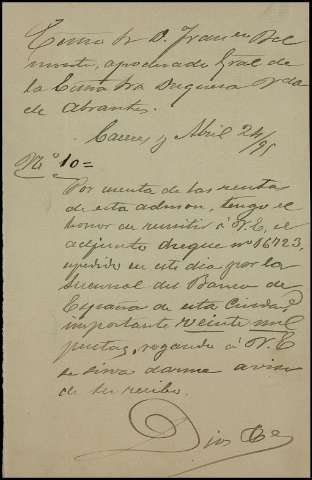 Excmo Sr D. Juan en Bel
monte, apoderado Gral de
la Excma Sra Duquesa Vda
de Abrantes.
Caceres y Abril 24/95
No 10 =
Por cuenta de las rentas
de esta admon, tengo el
honor de remitir á V.E. el
adjunto cheque no 16723,
expedido en este dia por la
Sucursal del Banco de
España de esta Ciudad,
importante veinte mil
pesetas, rogando á V.E
se sirva darme aviso
de su recibo.
Dios &a